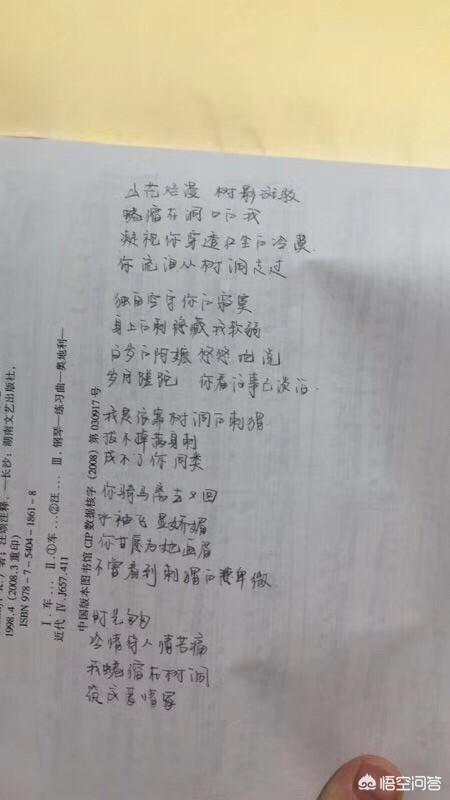 山花烂漫 树影斑驳
蜷缩在洞口的我
凝视你穿透红尘的冷漠
你流泪从树洞走过
独自空守你的寂寞
身上的刺隐藏我软弱
白岁的阿嬷 悠悠地说
岁月蹉跎 你看往事已淡泊.
我是依靠树洞的刺猬
拔不掉满身刺
成不了你同类
你骑马离去又回
水袖飞显娇媚
你甘愿为她画眉
不曾看到刺猬的卑微
时光匆匆
冷情待人情苦痛
我蜷缩在树洞
筑成爱情冢
著; 汪颂注释. —长沙: 湖南文艺出版社,
1998.4 (2008.3 重印)
ISBN 978-7-5404-1861-8
Ⅰ. 车… Ⅱ. ①车…②汪… Ⅲ. 钢琴—练习曲—奥地利—
近代 Ⅳ. J657.411
中国版本图书馆 CIP 数据核字 (2008) 第 030917 号
悟空问答